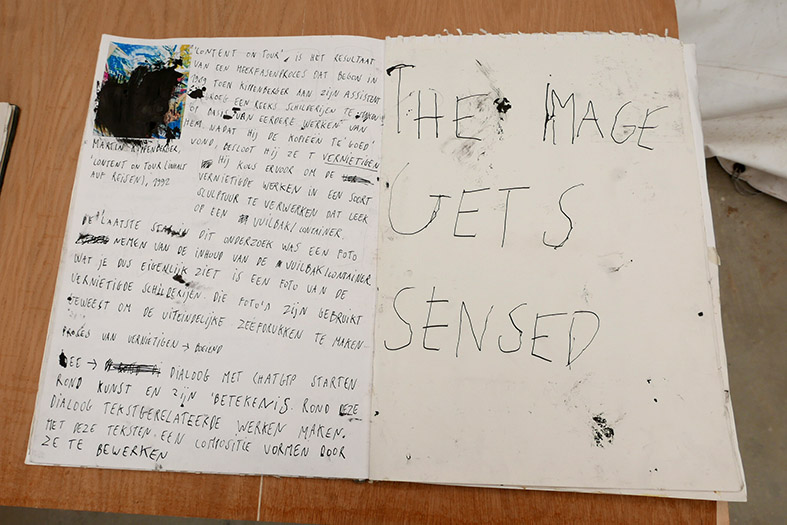 'CONTENT ON TOUR', IS HET RESULTAAT
VAN EEN MEERFASENPROCES DAT BEGON IN
TOEN KIPPENBERGER AAN ZIJN ASSISTENT
VROEG EEN REEKS SCHILDERIJEN TE
OP BASIS VAN EERDERE WERKEN VAN
HEM. NADAT HIJ DE KOPIEËN TE 'GOED'
VOND, BESLOOT HIJ ZE TE VERNIETIGEN
HIJ KOOS ERVOOR OM DE
VERNIETIGDE WERKEN IN EEN SOORT
SCULPTUUR TE VERWERKEN DAT LEEK
OP EEN VUILBAK/CONTAINER.
MARTIN KIPPENBERGER,
'CONTENT ON TOUR (INHALT
AUF REISEN), 1992
DE LAATSTE DIT ONDERZOEK WAS EEN FOTO
NEMEN VAN DE INHOUD VAN DE VUILBAK/CONTAINER
WAT JE DUS EIGENLIJK ZIET IS EEN FOTO VAN DE
VERNIETIGDE SCHILDERIJEN. DIE FOTO'S ZIJN GEBRUIKT
GEWEEST OM DE UITEINDELIJKE ZEEFDRUKKEN TE MAKEN.
PROCES VAN VERNIETIGEN → BOEIEND
IDEE → DIALOOG MET CHATGTP STARTEN
ROND KUNST EN ZIJN BETEKENIS. ROND DEZE
DIALOOG TEKSTGERELATEERDE WERKEN MAKEN.
MET DEZE TEKSTEN EEN COMPOSITIE VORMEN DOOR
ZE TE BEWERKEN
THE IMAGE
GETS
SENSED